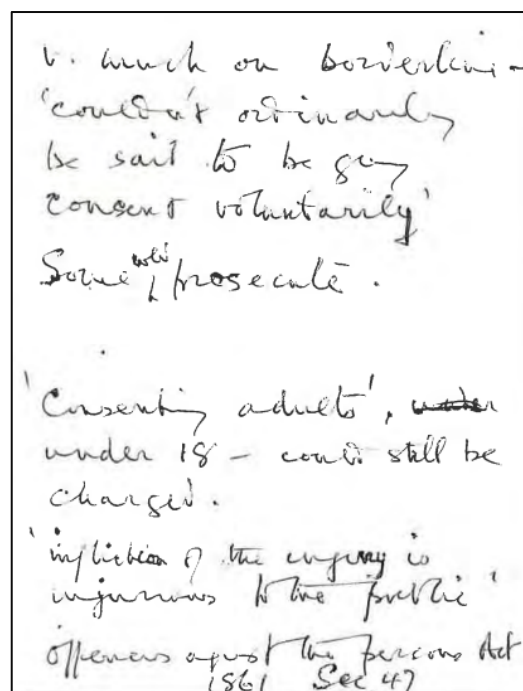 v. much on borderline -
'couldn't ordinarily
be said to be
consent voluntarily'
Some wld prosecute.
'Consenting adults', under
under 18 - could still be
charged.
'infliction of the injury is
injurious to the public'
Offences against the persons Act
1861 Sec 47